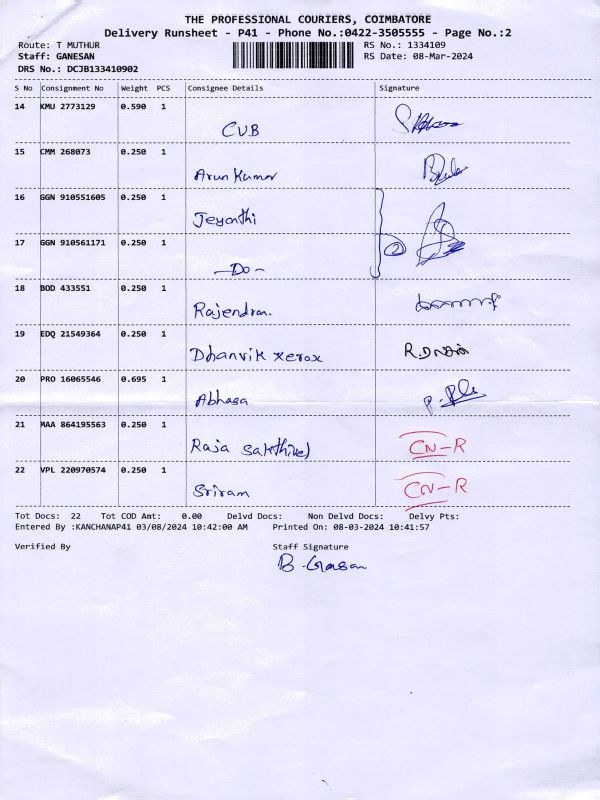 THE PROFESSIONAL COURIERS, COIMBATORE
Delivery Runsheet - P41 - Phone No.:0422-3505555 - Page No.:2
Route: T MUTHUR RS No.: 1334109
Staff: GANESAN RS Date: 08-Mar-2024
DRS No.: DCJB133410902
S No Consignment No Weight PCS Consignee Details Signature
14 KMU 2773129 0.590 1
CUB
15 CMM 268073 0.250 1
Arun Kumar
16 GGN 910551605 0.250 1
Jeyanthi
17 GGN 910561171 0.250 1
-Do-
18 BOD 433551 0.250 1
Rajendran.
19 EDQ 21549364 0.250 1
Dhanvik xerox
20 PRO 16065546 0.695 1
Abhasa
21 MAA 864195563 0.250 1
Raja Sakthivel CN-R
22 VPL 220970574 0.250 1
Sriram CN-R
Tot Docs: 22 Tot COD Amt: 0.00 Delvd Docs: Non Delvd Docs: Delvy Pts:
Entered By :KANCHANAP41 03/08/2024 10:42:00 AM Printed On: 08-03-2024 10:41:57
Verified By Staff Signature